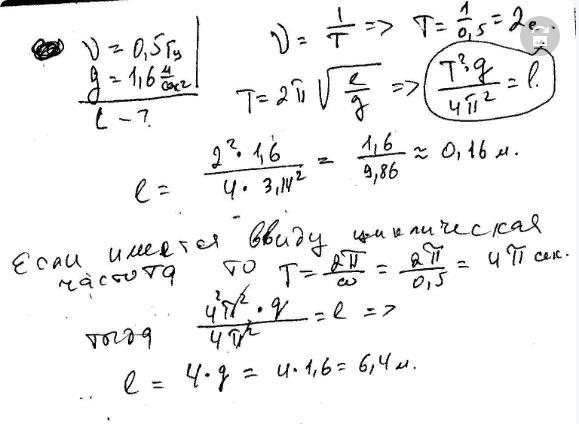 ν = 0,5 Гц
g = 1,6 м/сек²
l - ?
ν = 1/T => T = 1/0,5 = 2с.
T = 2π√(l/g) => T²·g/4π² = l
l = 2²·1,6/4·3,14² = 1,6/9,86 ≈ 0,16 м.
Если имеется ввиду циклическая
частота то T = 2π/ω = 2π/0,5 = 4π сек.
тогда 4²π²·g/4π² = l =>
l = 4·g = 4·1,6 = 6,4 м.